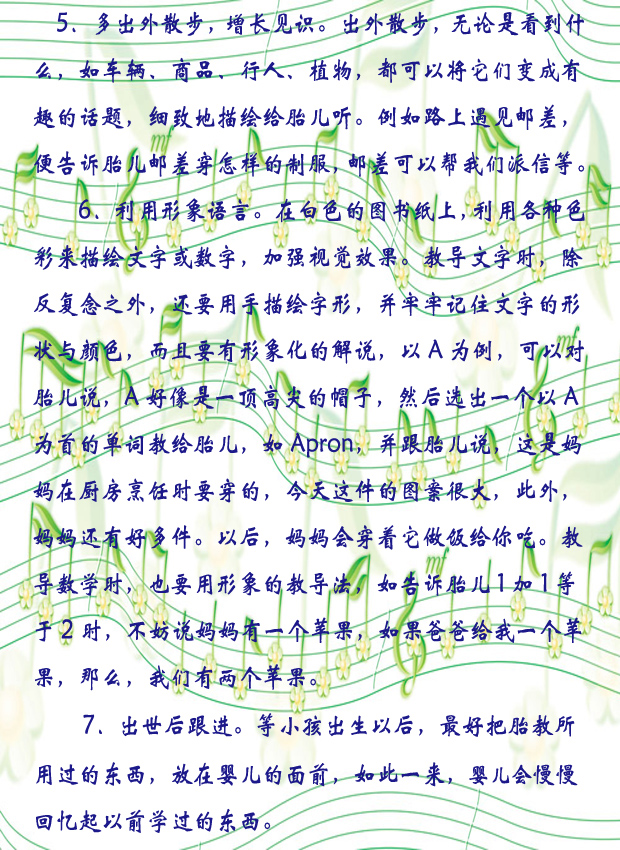 5、多出外散步，增长见识。出外散步，无论是看到什
么，如车辆、商品、行人、植物，都可以将它们变成有
趣的话题，细致地描绘给胎儿听。例如路上遇见邮差，
便告诉胎儿邮差穿怎样的制服，邮差可以帮我们派信等。
6、利用形象语言。在白色的图书纸上，利用各种色
彩来描绘文字或数字，加强视觉效果。教导文字时，除
反复念之外，还要用手描绘字形，并牢牢记住文字的形
状与颜色，而且要有形象化的解说，以 A 为例，可以对
胎儿说，A 好像是一顶高尖的帽子，然后选出一个以 A
为首的单词教给胎儿，如 Apron，并跟胎儿说，这是妈
妈在厨房烹饪时要穿的，今天这件的图案很大，此外，
妈妈还有好多件。以后，妈妈会穿着它做饭给你吃。教
导数学时，也要用形象的教导法，如告诉胎儿 1 加 1 等
于 2 时，不妨说妈妈有一个苹果，如果爸爸给我一个苹
果，那么，我们有两个苹果。
7、出世后跟进。等小孩出生以后，最好把胎教所
用过的东西，放在婴儿的面前，如此一来，婴儿会慢慢
回忆起以前学过的东西。
mf
mf
mf